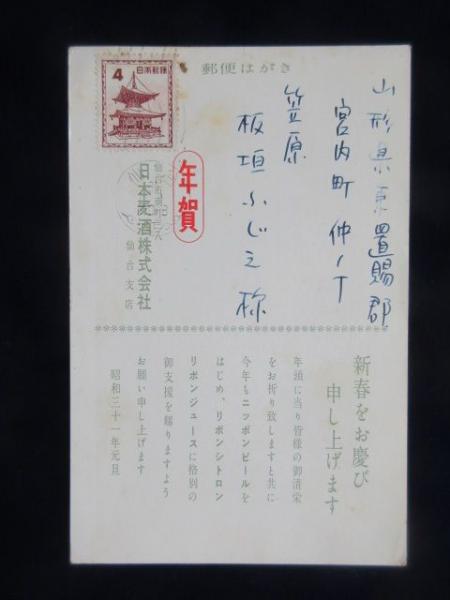 郵便はがき
4 日本郵便
山形県東置賜郡
宮内町 仲ノ丁
笠原
板垣ふじ之祢
年賀
日本麦酒株式会社
仙台支店
新春をお慶び
申し上げます
年頭に当り皆様の御清栄
をお祈り致しますと共に
今年もニッポンビールを
はじめ、リボンシトロン
リボンジュースに格別の
御支援を賜りますよう
お願い申し上げます
昭和三十一年元旦